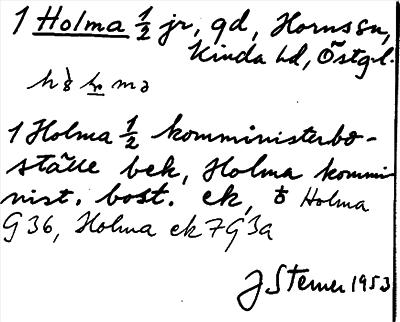 1 Holma ½ jr, gd, Hornssn,
Kinda hd, Östgl.
1 Holma ½ komministerbo-
ställe bek, Holma kommi-
nist. bost. ek, Holma
G 36, Holma ek 7G3a
J Sterner 1953